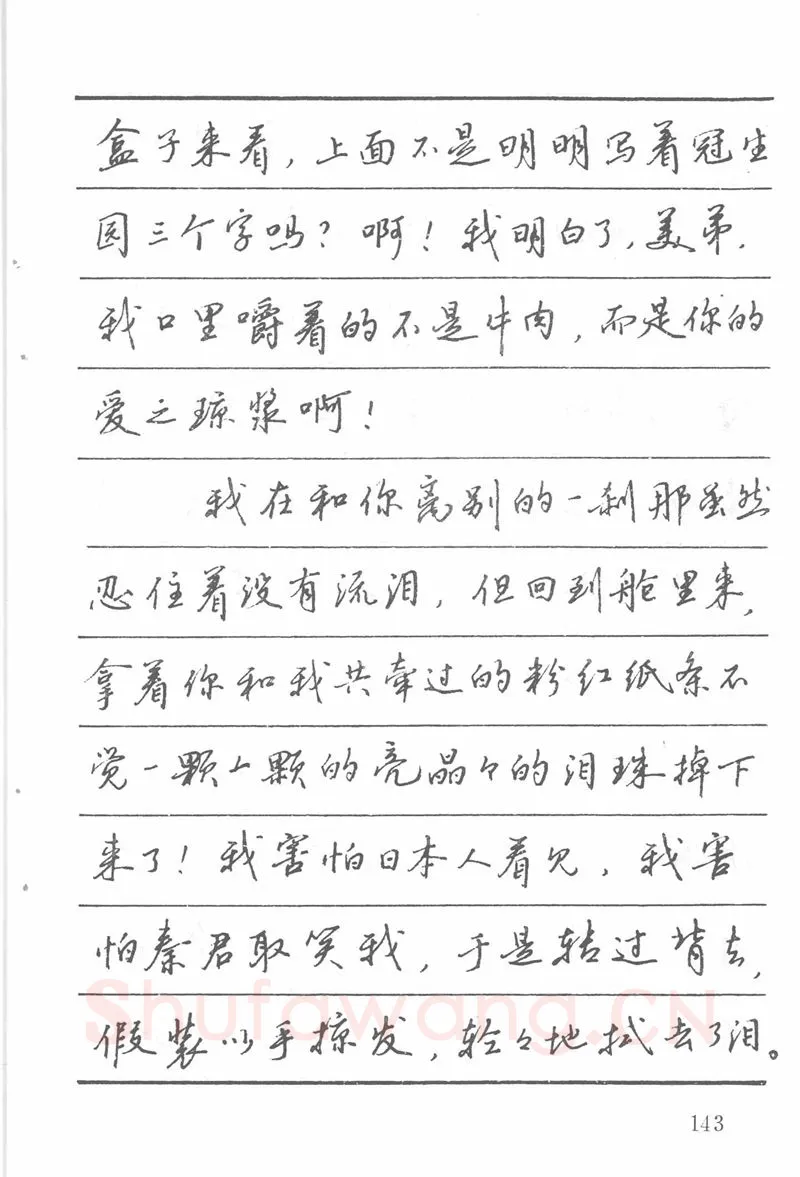 盒子来看，上面不是明明写着冠生
园三个字吗？啊！我明白了，美弟，
我口里嚼着的不是牛肉，而是你的
爱之琼浆啊！
我在和你离别的一刹那虽然
忍住着没有流泪，但回到舱里来，
拿着你和我共牵过的粉红纸条不
觉一颗一颗的亮晶々的泪珠掉下
来了！我害怕日本人看见，我害
怕秦君取笑我，于是转过背去，
假装以手掠发，轻々地拭去了泪。
Shufawang.CN
143